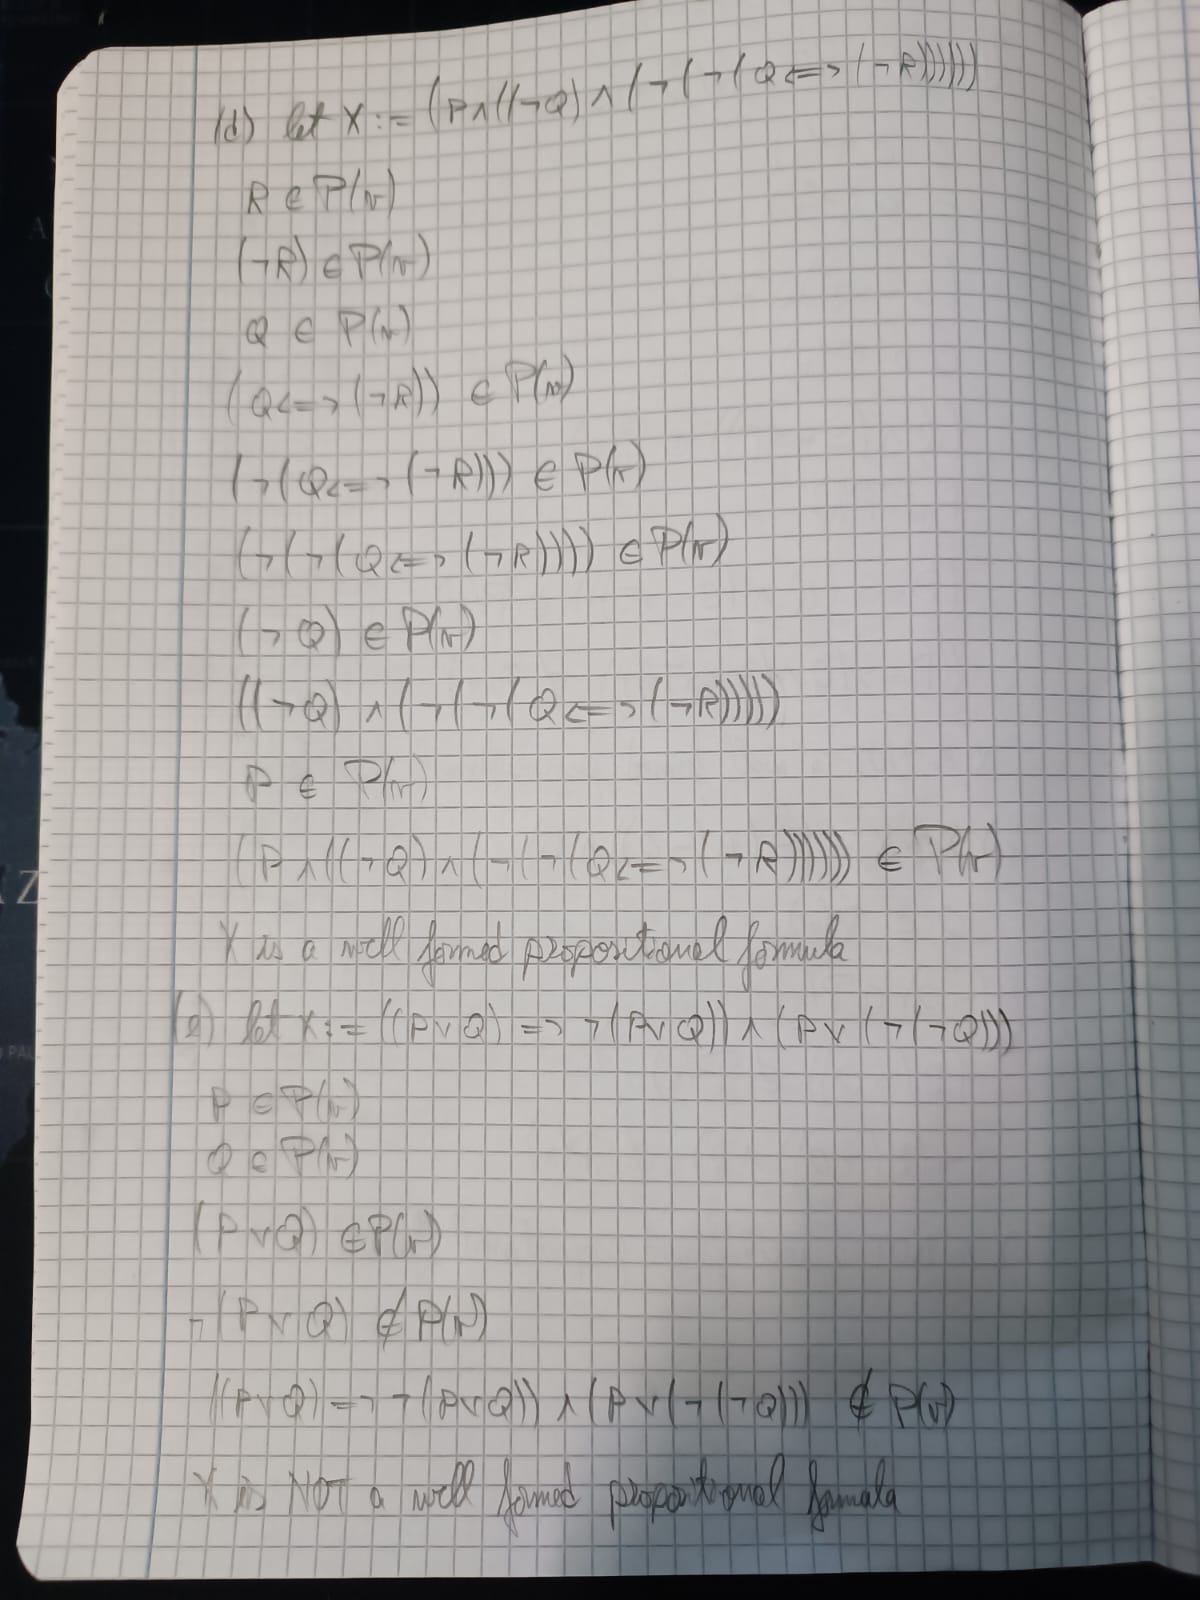 (d) let X := (P∧((¬Q)∧(¬(¬(Q<=>(¬R))))))
R ∈ P(v)
(¬R) ∈ P(v)
Q ∈ P(v)
(Q<=>(¬R)) ∈ P(v)
(¬(Q<=>(¬R))) ∈ P(v)
(¬(¬(Q<=>(¬R)))) ∈ P(v)
(¬Q) ∈ P(v)
((¬Q) ∧ (¬(¬(Q<=>(¬R)))))
P ∈ P(v)
(P∧((¬Q)∧(¬(¬(Q<=>(¬R)))))) ∈ P(v)
X is a well formed propositional formula
(e) let X := ((P∨Q) => ¬(P∨Q)) ∧ (P∨(¬(¬Q)))
P ∈ P(v)
Q ∈ P(v)
(P∨Q) ∈ P(v)
¬(P∨Q) ∉ P(v)
((P∨Q) => ¬(P∨Q)) ∧ (P∨(¬(¬Q))) ∉ P(v)
X is NOT a well formed propositional formula